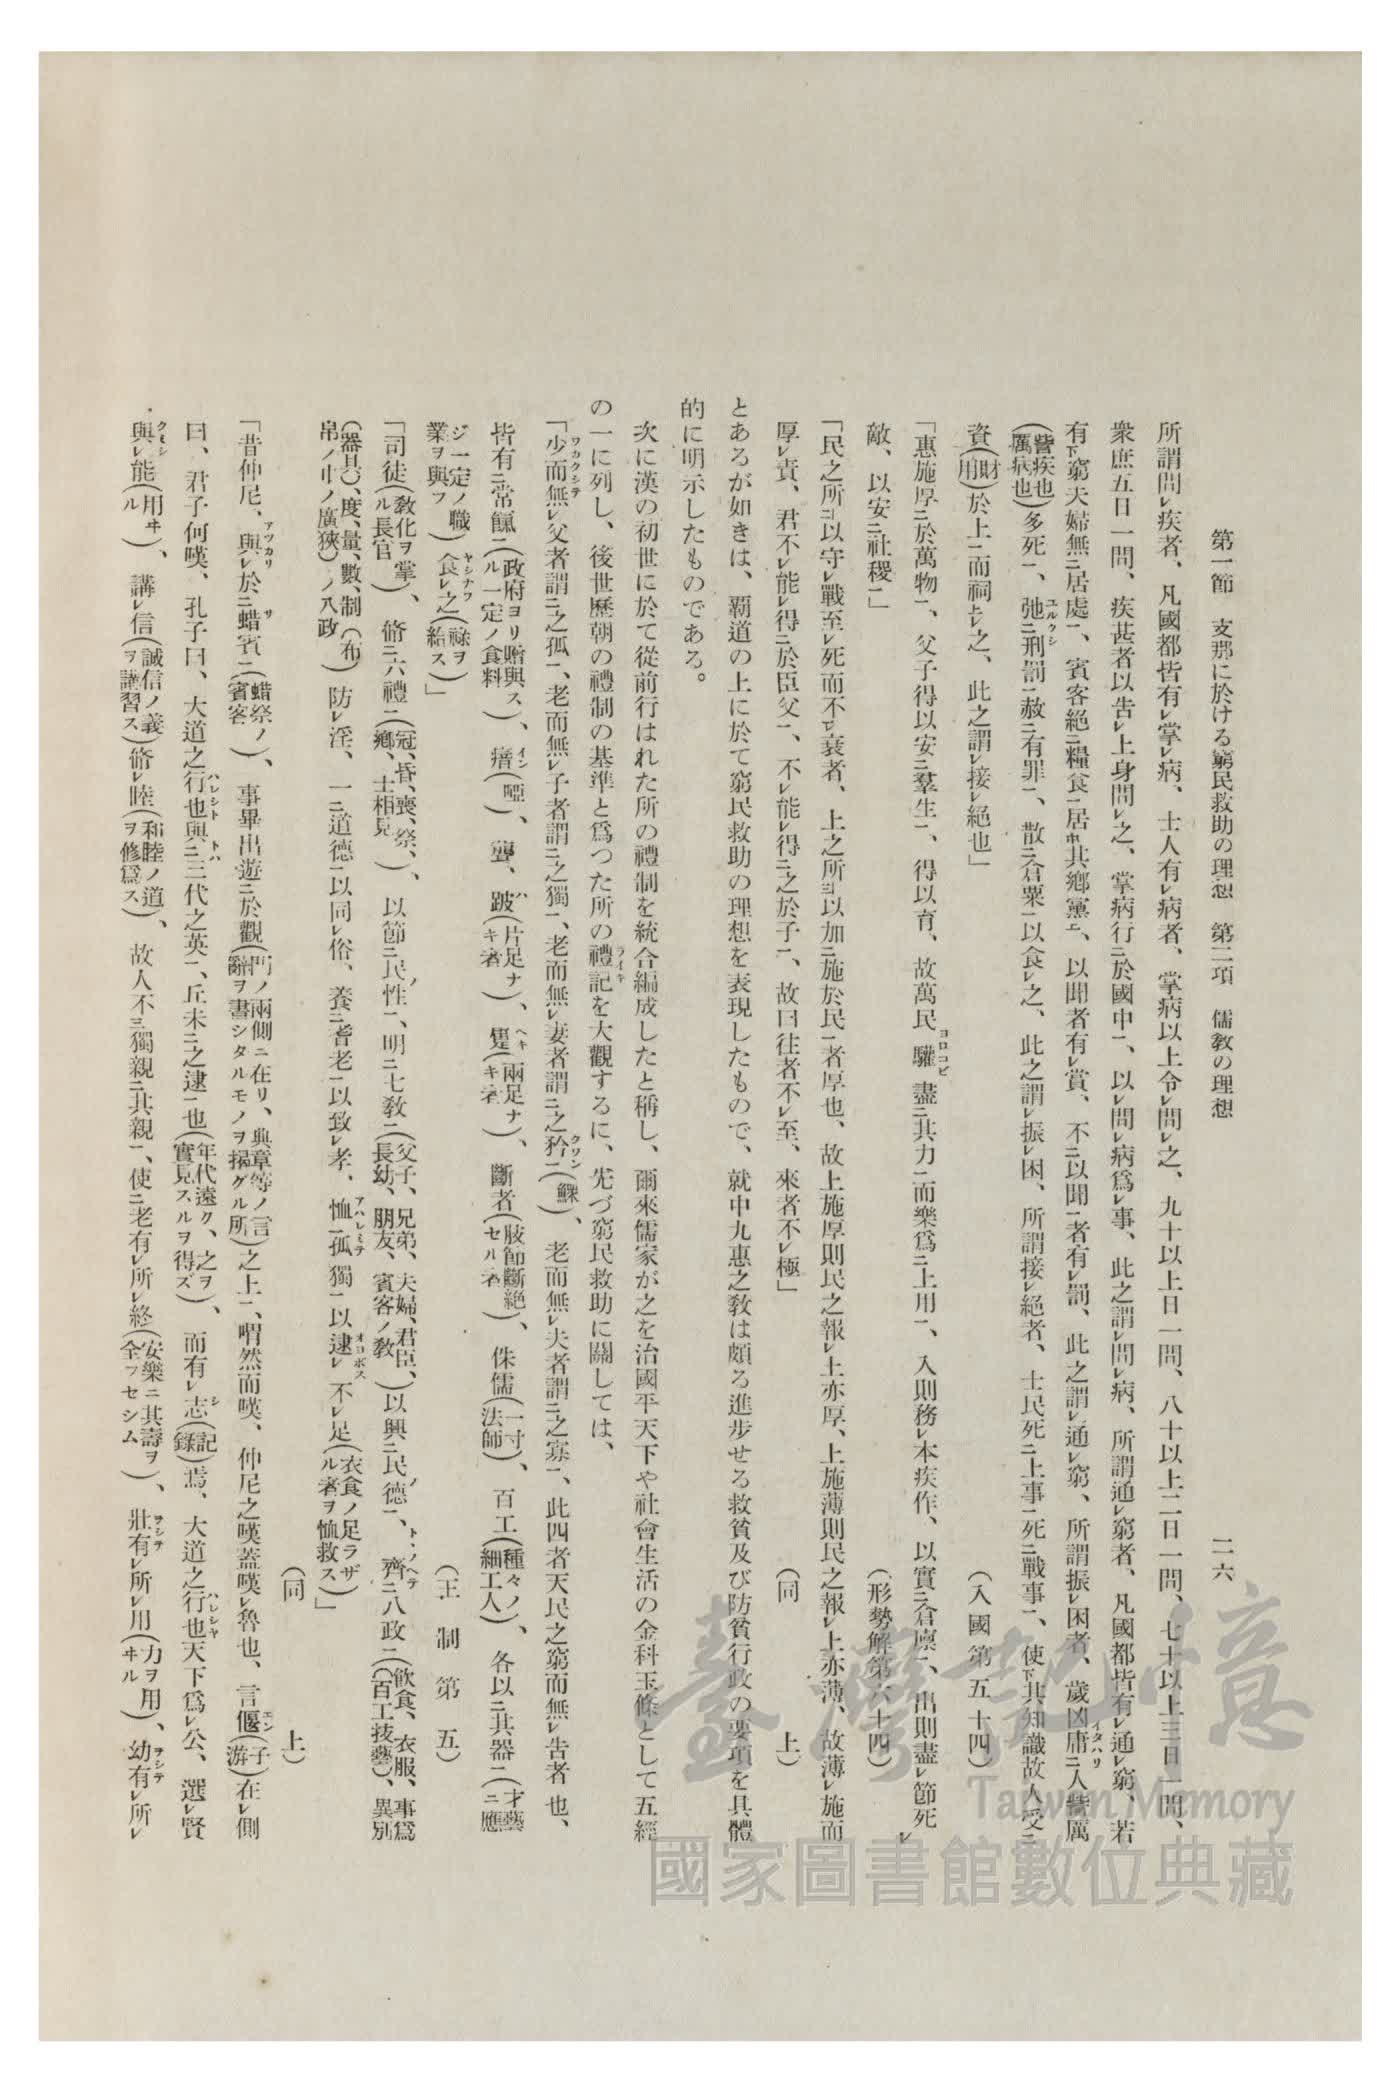 第一節　支那に於ける窮民救助の理想　第二項　儒教の理想　二六
所謂問レ疾者、凡國都皆有レ掌レ病、士人有レ病者、掌病以上令レ問レ之、九十以上日一問、八十以上二日一問、七十以上三日一問、
衆庶五日一問、疾甚者以告レ上身問レ之、掌病行ニ於國中一、以レ問レ病爲レ事、此之謂レ問レ病、所謂通レ窮者、凡國都皆有レ通レ窮、若
有下窮夫婦無ニ居處一、賓客絕ニ糧食一居中其鄕黨上、以聞者有レ賞、不ニ以聞一者有レ罰、此之謂レ通レ窮、所謂振レ困者、歲凶庸ニ人訾厲
（訾疾也厲病也）多死一、弛ニ刑罰一赦ニ有罪一、散ニ倉粟一以食レ之、此之謂レ振レ困、所謂接レ絕者、士民死ニ上事一死ニ戰事一、使下其知識故人受ニ
資（財用）於上一而祠上レ之、此之謂レ接レ絕也」　（入國第五十四）
「惠施厚ニ於萬物一、父子得以安ニ羣生一、得以育、故萬民驩盡ニ其力一而樂爲ニ上用一、入則務レ本疾作、以實ニ倉廩一、出則盡レ節死レ
敵、以安ニ社稷一」　（形勢解第六十四）
「民之所ニ以守レ戰至レ死而不一レ衰者、上之所ニ以加ニ施於民一者厚也、故上施厚則民之報レ上亦厚、上施薄則民之報レ上亦薄、故薄レ施而
厚レ責、君不レ能レ得ニ於臣父一、不レ能レ得ニ之於子一、故曰往者不レ至、來者不レ極」　（同　上）
とあるが如きは、覇道の上に於て窮民救助の理想を表現したもので、就中九惠之敎は頗る進步せる救貧及び防貧行政の要項を具體
的に明示したものである。
次に漢の初世に於て從前行はれた所の禮制を統合編成したと稱し、爾來儒家が之を治國平天下や社會生活の金科玉條として五經
の一に列し、後世歷朝の禮制の基準と爲つた所の禮記ライキを大觀するに、先づ窮民救助に關しては、
「少ワカクシテ而無レ父者謂ニ之孤一、老而無レ子者謂ニ之獨一、老而無レ妻者謂ニ之矜クワン一（鰥）、老而無レ夫者謂ニ之寡一、此四者天民之窮而無レ吿者也、
皆有ニ常餼一（政府ヨリ贈與スル一定ノ食料）、瘖イン（啞）、聾、跛ハ（片足ナキ者）、躄ヘキ（兩足ナキ者）、斷者（肢節斷絕セル者）、侏儒（一寸法師）、百工（種々ノ細工人）、各以ニ其器一（才藝ニ應
ジ一定ノ職業ヲ與フ）食ヤシナフレ之（祿ヲ給ス）」　（王制第五）
「司徒（敎化ヲ掌ル長官）、脩ニ六禮一（冠、昏、喪、祭、鄕、士相見）、以節ニ民性一、明ニ七敎一（父子、兄弟、夫婦、君臣、長幼、朋友、賓客ノ敎）以興ニ民德一、齊トヽノヘテニ八政一（飮食、衣服、事爲（百工技藝）、異別
（器具）、度、量、數、制（布帛ノ巾ノ廣狹）ノ八政）防レ淫、一ニ道德一以同レ俗、養ニ耆老一以致レ孝、恤アハレミテニ孤獨一以逮オヨボスレ不レ足（衣食ノ足ラザル者ヲ恤救ス）」　（同　上）
「昔仲尼、與アヅカリレ於ニ蜡サ賓一（蜡祭ノ賓客）、事畢出遊ニ於觀（門ノ兩側ニ在リ、典章等ノ言辭ヲ書シタルモノヲ揭グル所）之上一、喟然而嘆、仲尼之嘆蓋嘆レ魯也、言偃エン（子游）在レ側
曰、君子何嘆、孔子曰、大道之行ハレシト也與トハニ三代之英一、丘未ニ之逮一也（年代遠ク、之ヲ實見スルヲ得ズ）、而有レ志シ（記錄）焉、大道之行ハレシヤ也天下爲レ公、選レ賢
與クミシレ能（用ヰル）、講レ信（誠信ノ義ヲ講習ス）脩レ睦（和睦ノ道ヲ修爲ス）、故人不三獨親ニ其親一、使ニ老有レ所レ終（安樂ニ其壽ヲ全フセシム）、壯ヲシテ有レ所レ用（力ヲ用ヰル）、幼ヲシテ有レ所レ
臺灣記憶
Taiwan Memory
國家圖書館數位典藏